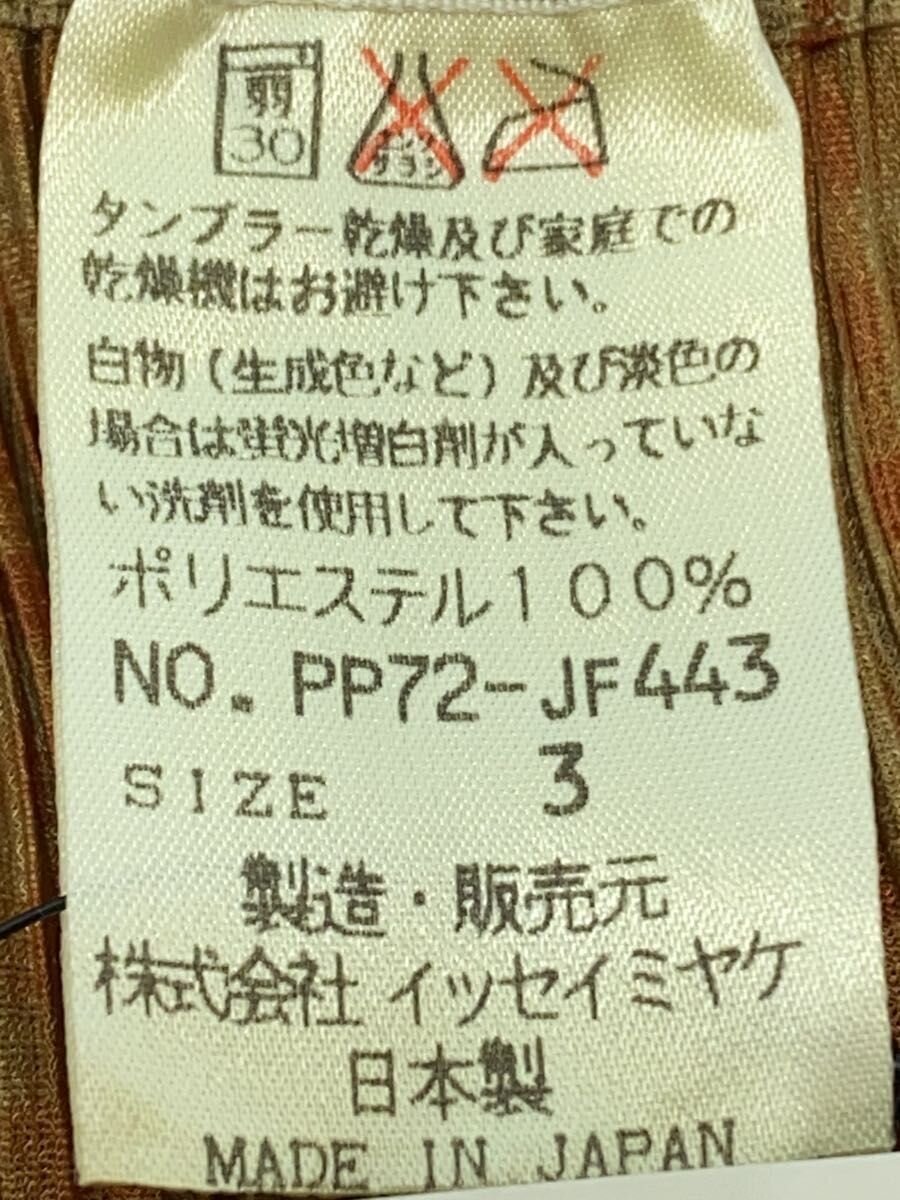 弱
30
タンブラー乾燥及び家庭での
乾燥機はお避け下さい。
白物（生成色など）及び淡色の
場合は蛍光増白剤が入っていな
い洗剤を使用して下さい。
ポリエステル100%
NO. PP72-JF443
SIZE 3
製造・販売元
株式会社 イッセイミヤケ
日本製
MADE IN JAPAN